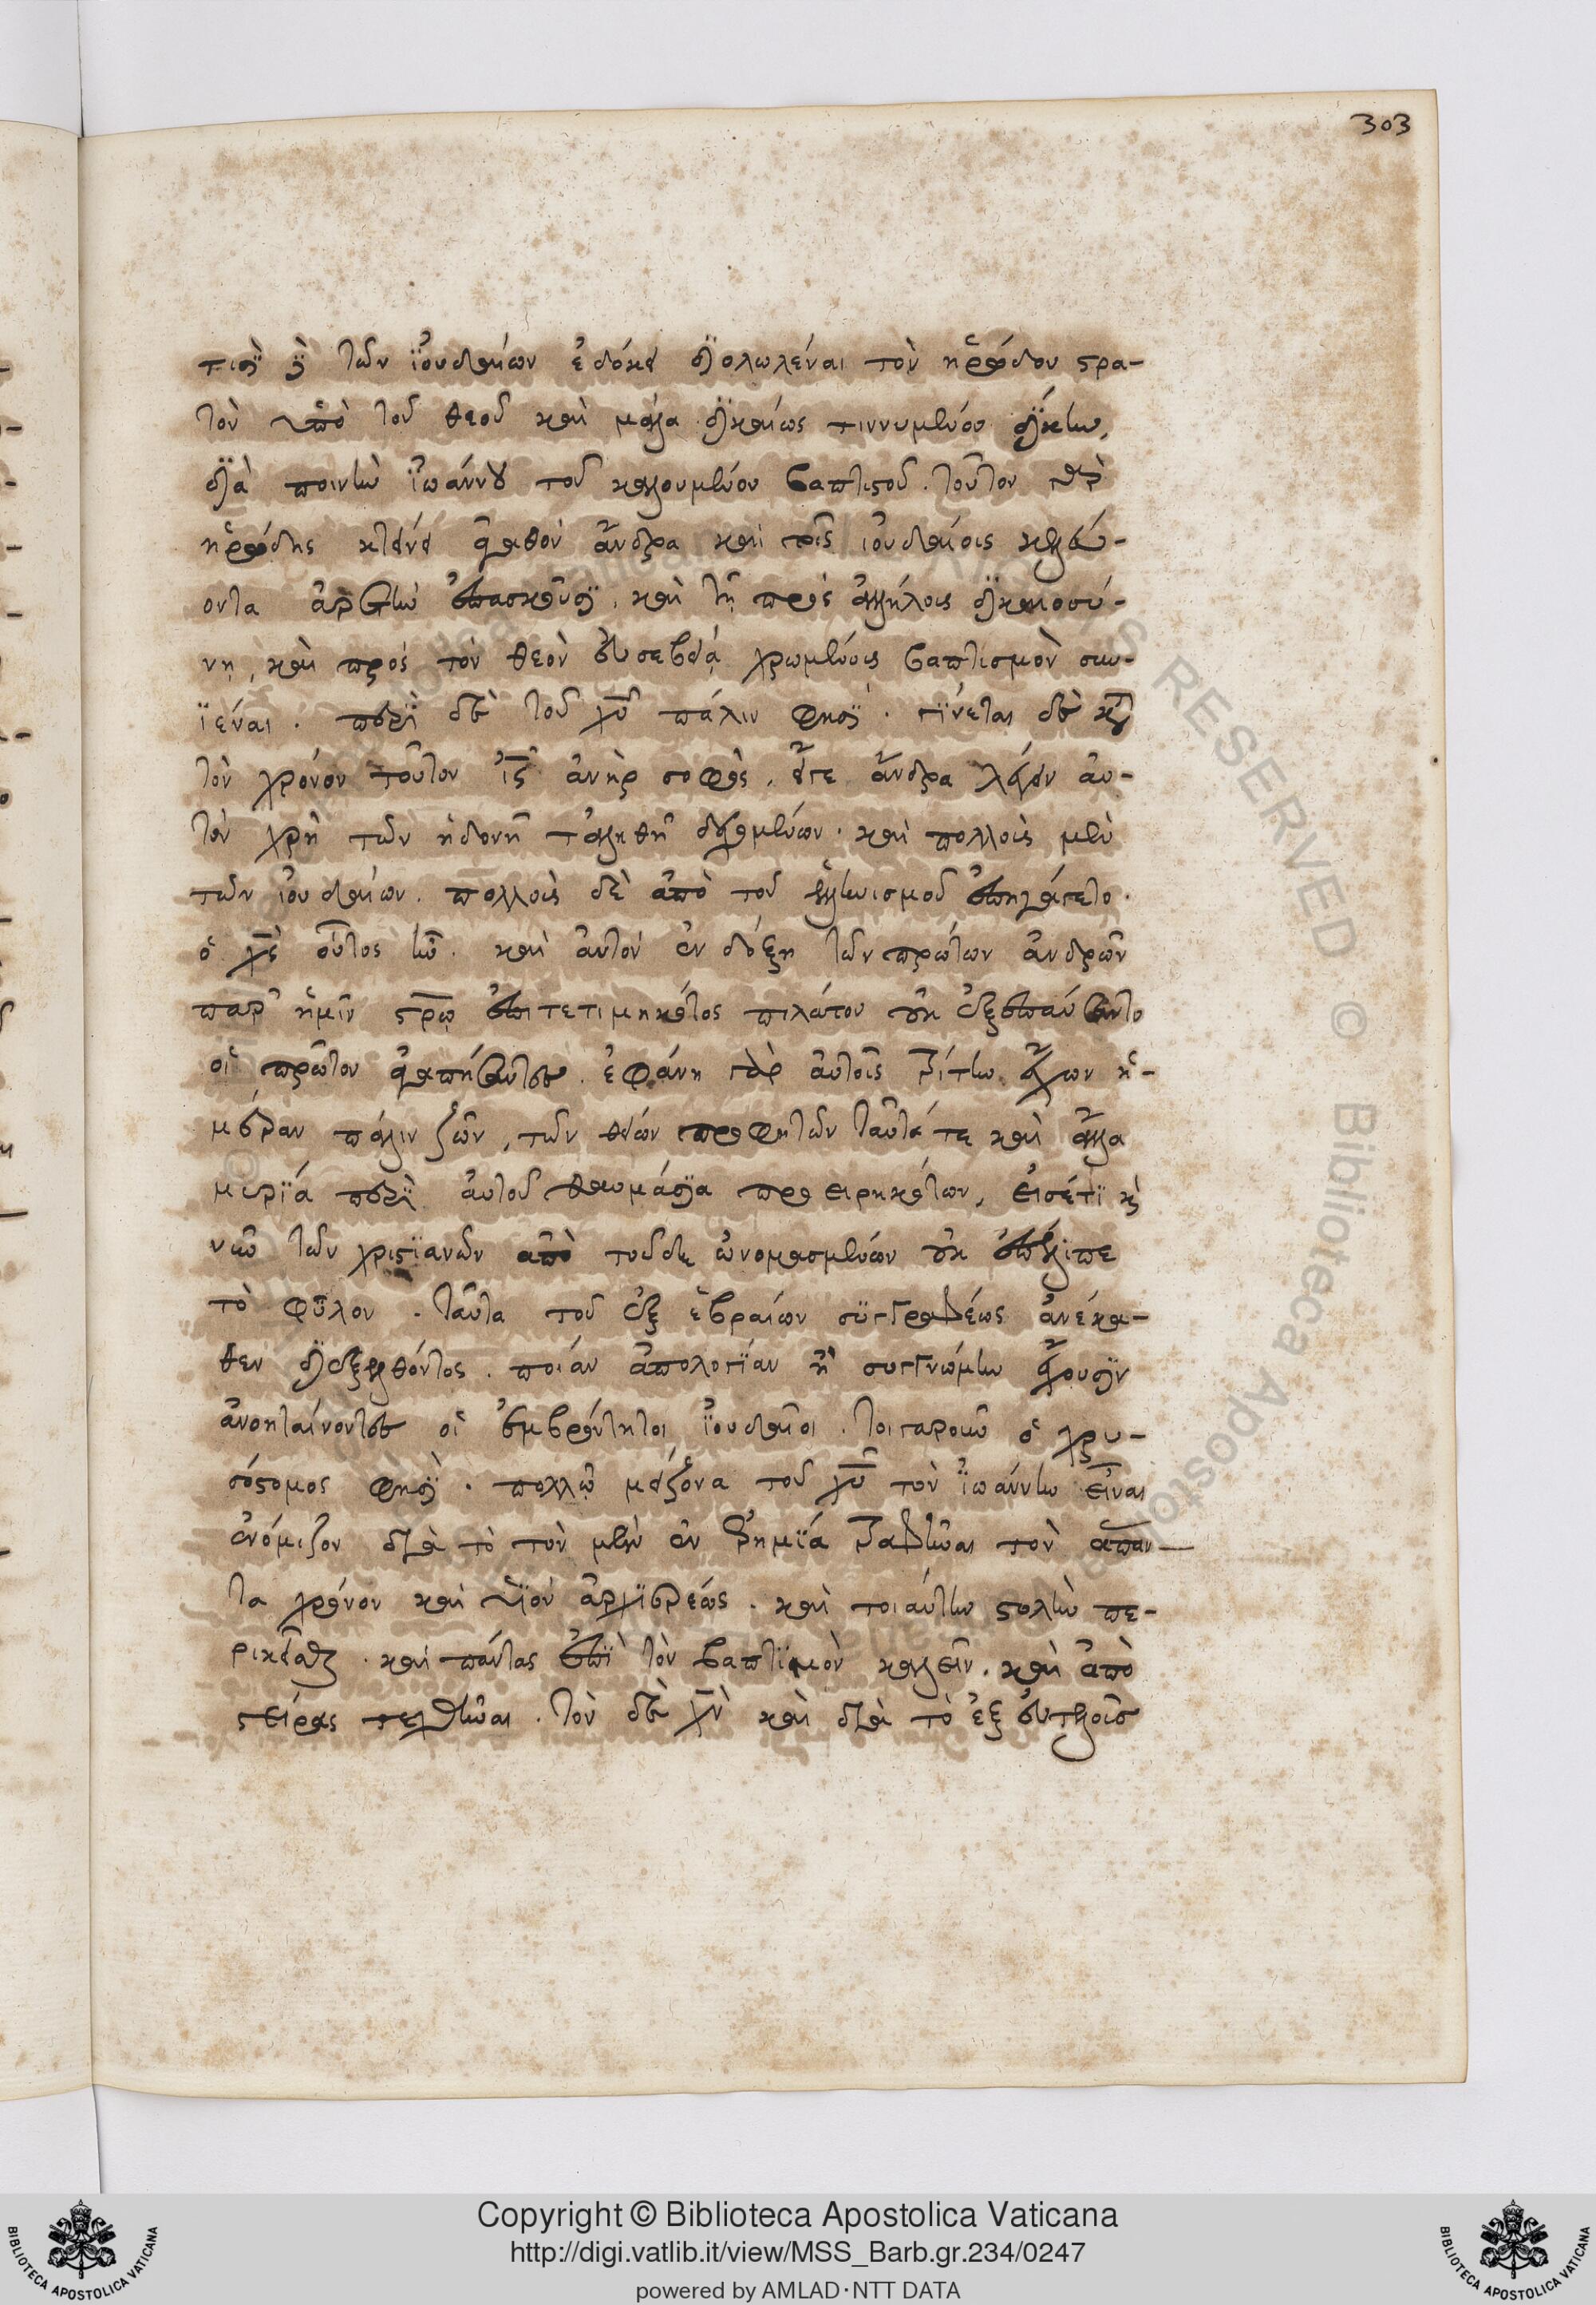 303
τισὶ δὲ τῶν ἰουδαίων ἐδόκει διολωλέναι τὸν ἡρώδου στρα-
τὸν ὑπὸ τοῦ θεοῦ καὶ μάλα δικαίως τιννυμένου δίκην,
διὰ ποινὴν ἰωάννου τοῦ καλουμένου βαπτιστοῦ. τοῦτον γὰρ
ἡρώδης κτείνει ἀγαθὸν ἄνδρα καὶ τοῖς ἰουδαίοις κελεύ-
οντα ἀρετὴν ἐπασκοῦσι, καὶ τῇ πρὸς ἀλλήλοις δικαιοσύ-
νῃ, καὶ πρὸς τὸν θεὸν εὐσεβείᾳ χρωμένοις βαπτισμὸν συν-
ϊέναι. περὶ δὲ τοῦ χυ πάλιν φησί. γίνεται δὲ κατὰ
τὸν χρόνον τοῦτον ις ἀνὴρ σοφὸς, εἴγε ἄνδρα λέγειν αὐ-
τὸν χρὴ τῶν ἡδονῇ τἀληθῆ δεχομένων. καὶ πολλοὺς μὲν
τῶν ἰουδαίων. πολλοὺς δὲ ἀπὸ τοῦ ἑλληνισμοῦ ἐπηγάγετο.
ὁ χς οὗτος ἦν. καὶ αὐτὸν ἐν δόξῃ τῶν πρώτων ἀνδρῶν
παρ' ἡμῖν στρω ἐπιτετιμηκότος πιλάτου οὐκ ἐξεπαύσαντο
οἱ πρῶτον ἀγαπήσαντες. ἐφάνη γὰρ αὐτοῖς τρίτην ἔχων ἡ-
μέραν πάλιν ζῶν, τῶν θείων προφητῶν ταῦτά τε καὶ ἄλλα
μυρία περὶ αὐτοῦ θαυμάσια προειρηκότων, εἰσέτι καὶ
νῦν τῶν χριστιανῶν ἀπὸ τοῦδε ὠνομασμένων οὐκ ἐπέλιπε
τὸ φῦλον. ταῦτα τοῦ ἐξ ἑβραίων συγγραφέως ἀνέκα-
θεν διεξελθόντος. ποίαν ἀπολογίαν ἢ συγγνώμην ἔχουσιν
ἀνοηταίνοντες οἱ ἐμβρόντητοι ἰουδαῖοι. τοιγαροῦν ὁ χρυ-
σόστομος φησὶ. πολλῷ μείζονα τοῦ χυ τὸν ἰωάννην εἶναι
ἐνόμιζον διὰ τὸ τὸν μὲν ἐν ἐρημίᾳ τραφῆναι τὸν ἅπαν-
τα χρόνον καὶ υἱὸν ἀρχιερέως. καὶ τοιαύτην στολὴν πε-
ρικεῖσθαι. καὶ πάντας ἐπὶ τὸν βαπτισμὸν καλεῖν. καὶ ἀπὸ
στείρας τεχθῆναι. τὸν δὲ χν καὶ διὰ τὸ ἐξ εὐτελοῦς
Copyright © Biblioteca Apostolica Vaticana
http://digi.vatlib.it/view/MSS_Barb.gr.234/0247
powered by AMLAD·NTT DATA